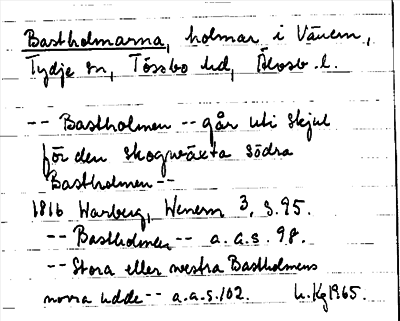 Bastholmarna, holmar i Vänern,
Tydje sn, Tössbo hd, Älvsb. l.
-- Bastholmen -- går uti skjul
för den skogwäxta södra
Bastholmen --
1816 Warberg, Wenern 3, s. 95.
-- Bastholmen -- a.a.s. 98.
-- Stora eller westra Bastholmens
norra udde -- a.a.s. 102. h. Kg 1965.